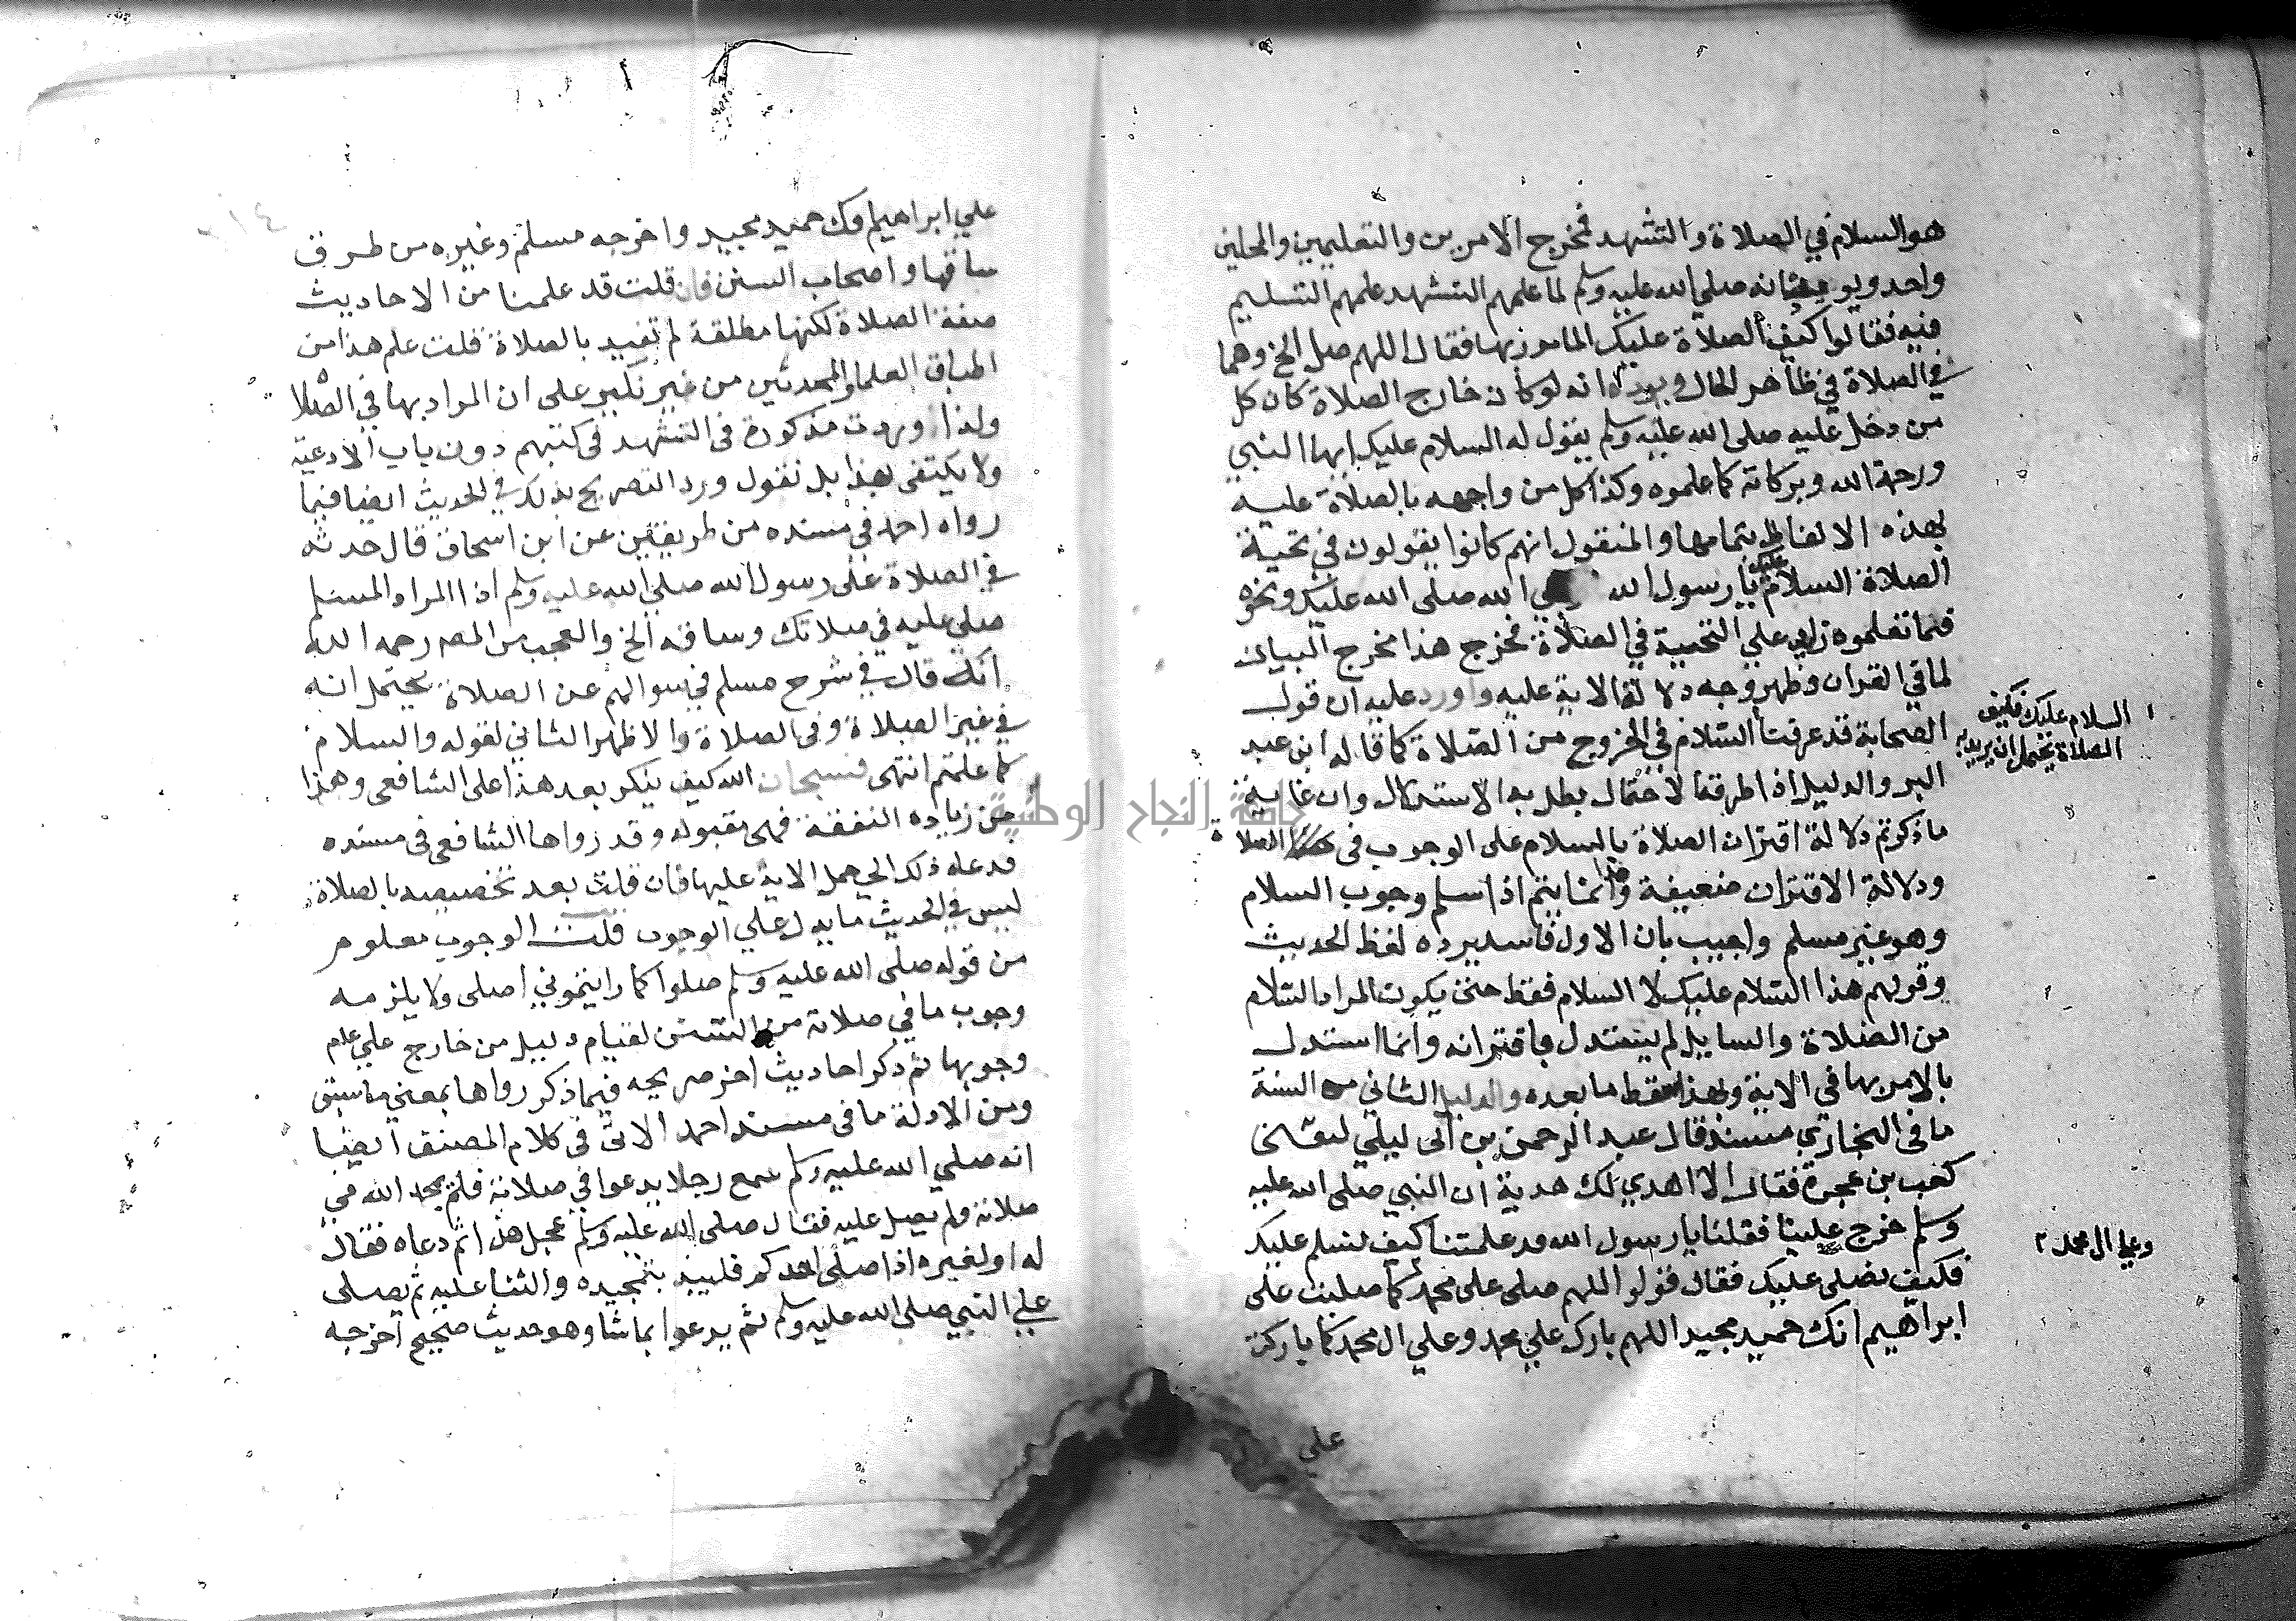 هو السلام في الصلاة والتشهد فمخرج الامرين والتعليمين والمحلين
واحد ويوضحه انه صلي الله عليه وسلم لما علمهم التشهد علمهم التسليم
فيه فقالوا كيف الصلاة عليك المامور بها فقال اللهم صل الخ وهما
في الصلاة في ظاهر الحال ويويده انه لو كان خارج الصلاة كان كل
من دخل عليه صلى الله عليه وسلم يقول له السلام عليك ايها النبي
ورحمة الله وبركاته كما علموه وكذا كل من واجهه بالصلاة عليه
بهذه الالفاظ بتمامها والمنقول انهم كانوا يقولون في تحية
الصلاة السلام عليك يا رسول الله الله صلى الله عليك ونحوه
فما تعلموه زايد علي التحية في الصلاة فخرج هذا مخرج البيان
لما في القران وظهر وجه دلالة الاية عليه واورد عليه ان قول
الصحابة قد عرفنا السلام في الخروج من الصلاة كما قاله ابن عبد
السلام عليك فكيف
الصلاة يحتمل ان يريد به
البر والدليل اذا طرقه الاحتمال بطل به الاستدلال وان غاية
جامعة النجاح الوطنية
ما ذكرتم دلالة اقتران الصلاة بالسلام على الوجوب في الصلاة
ودلالة الاقتران ضعيفة وانما يتم اذا سلم وجوب السلام
وهو غير مسلم واجيب بان الاول فاسد يرده لفظ الحديث
وقولهم هذا السلام عليك لا السلام فقط حتى يكون المراد السلام
من الصلاة والسايل لم يستدل باقترانه وانما استدل
بالامر بها في الاية وبهذا سقط ما بعده والدليل الثاني من السنة
ما في البخاري مسند قال عبد الرحمن بن ابى ليلي لقيني
كعب بن عجرة فقال الا اهدي لك هدية ان النبي صلى الله عليه
وسلم خرج علينا فقلنا يا رسول الله قد علمتنا كيف نسلم عليك
فكيف نصلى عليك فقال قولوا اللهم صلى على محمد كما صليت على
وعلي ال محمد ٢
ابراهيم انك حميد مجيد اللهم بارك علي محمد وعلي ال محمد كما باركت
علي
علي ابراهيم انك حميد مجيد واخرجه مسلم وغيره من طرق
ساقها واصحاب السنن فان قلت قد علمنا من الاحاديث
صفة الصلاة لكنها مطلقة لم تقيد بالصلاة قلت علم هذا من
اطباق العلما والمحدثين من غير نكير على ان المراد بها في الصلاة
ولذا وردت مذكورة في التشهد في كتبهم دون باب الادعية
ولا يكتفى بهذا بل نقول ورد التصريح بذلك في الحديث ايضا فيما
رواه احمد في مسنده من طريقين عن ابن اسحاق قال حدثه
في الصلاة على رسول الله صلي الله عليه وسلم اذا المراد المسلم
صلي عليه في صلاتك وساقه الخ والعجب من المص رحمه الله
انك قال في شرح مسلم في سوالهم عن الصلاة يحتمل انه
في غير الصلاة وفي الصلاة والاظهر الثاني لقوله والسلام
كما علمتم انتهى فسبحان الله كيف ينكر بعد هذا على الشافعي وهذا
من زيادة الثقة فهى مقبوله وقد رواها الشافعي في مسنده
فدعاه ذلك الي حمل الاية عليها فان قلت بعد تخصيصه بالصلاة
ليس في الحديث ما يدل علي الوجوب قلت الوجوب معلوم
من قوله صلى الله عليه وسلم صلوا كما رايتموني اصلى ولا يلزمه
وجوب ما في صلاته من السنن لقيام دليل من خارج علي عدم
وجوبها ثم ذكر احاديث اخر صريحه فيما ذكر رواها بمعني ما سبق
ومن الادلة ما في مسند احمد الاتى في كلام المصنف ايضا
انه صلي الله عليه وسلم سمع رجلا يدعوا في صلاته فلم يحمد الله في
صلاته ولم يصل عليه فقال صلى الله عليه وسلم عجل هذا ثم دعاه فقال
له او لغيره اذا صلى احدكم فليبدا بتمجيده والثنا عليه ثم يصلى
علي النبي صلى الله عليه وسلم ثم يدعوا بما شا وهو حديث صحيح اخرجه